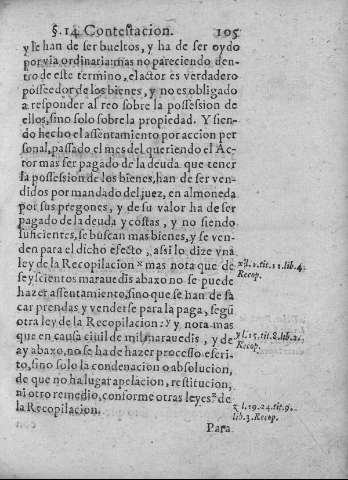 §. 14. Contestacion. 105
y se han de ser bueltos, y ha de ser oydo
por via ordinaria: mas no pareciendo den-
tro de este termino, el actor es verdadero
posseedor de los bienes, y no es obligado
a responder al reo sobre la possession de
ellos, sino solo sobre la propiedad. Y sien-
do hecho el assentamiento por accion per
sonal, passado el mes del queriendo el Ac-
tor mas ser pagado de la deuda que tener
la possession de los bienes, han de ser ven-
didos por mandado del juez, en almoneda
por sus pregones, y de su valor ha de ser
pagado de la deuda y costas, y no siendo
suficientes, se buscan mas bienes, y se ven-
den para el dicho efecto, assi lo dize vna
ley de la Recopilacion x mas nota que de
seyscientos marauedis abaxo no se puede
hazer assentamiento, sino que se han de sa
car prendas y venderse para la paga, segũ
otra ley de la Recopilacion: y y nota mas
que en causa ciuil de mil marauedis, y de
ay abaxo, no se ha de hazer processo escri-
to, sino solo la condenacion o absolucion,
de que no ha lugar apelacion, restitucion,
ni otro remedio, conforme otras leyes z de
la Recopilacion.
Para
x l. 2. tit. 11. lib. 4.
Recop.
y l. 15. tit. 8. lib. 2.
Recop.
z l. 19. 24. tit. 9.
lib. 3. Recop.